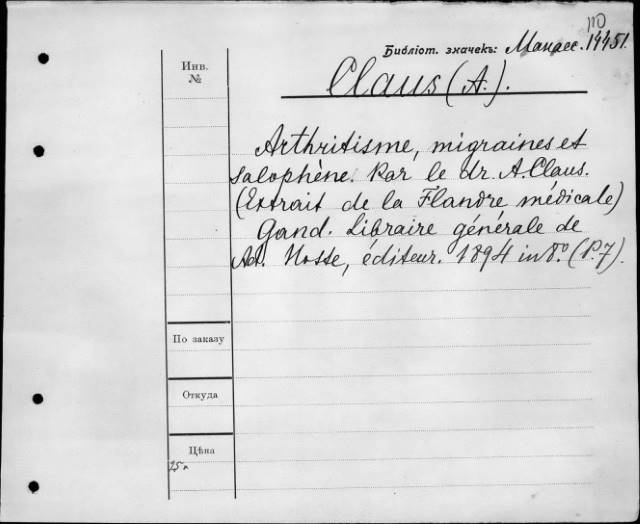 110
Библіот. значекъ: Мандес. 14451.
Инв.
№
Claus (A.).
Arthritisme, migraines et
salophène. Par le dr. A. Claus.
(Extrait de la Flandre médicale)
Gand. Libraire générale de
Ad. Hoste, éditeur. 1894 in 8.° (P. 7).
По заказу
Откуда
Цѣна
25 к